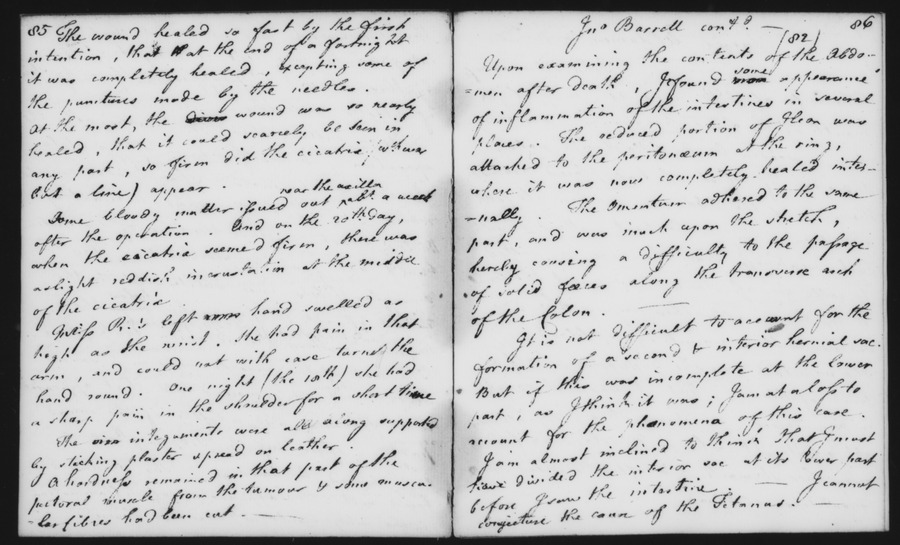 85 The wound healed so fast by the first
intention, that at the end of a fortnight
it was completely healed, excepting some of
the punctures made by the needles.
At the most, the wound was so nearly
healed, that it could scarcely be seen in
any part, so firm did the cicatrix (wch was
but a line) appear.
near the axilla
Some bloody matter issued out abt. a week
after the operation. And on the 20th day,
when the cicatrix seemed firm, there was
a slight reddish incrustation at the middle
of the cicatrix.
Miss P.'s left arm hand swelled as
high as the wrist. She had pain in that
arm, and could not with ease turn the
hand round. One night (the 18th) she had
a sharp pain in the shoulder for a short time
The integuments were all along supported
by sticking plaster spread on leather.
A hardness remained in that part of the
pectoral muscle from the tumour & some muscu-
-lar fibres had been cut. —
Jno Barrell contd. — 86
(82)
Upon examining the contents of the Abdo-
-men after death, I found some appearance
of inflammation of the intestines in several
places. The reduced portion of Ileon was
attached to the peritonæum at the ring,
where it was now completely healed inter-
-nally. The Omentum adhered to the same
part, and was much upon the stretch,
hereby causing a difficulty to the passage
of solid fæces along the transverse arch
of the Colon. —
It is not difficult to account for the
formation of a second & interior hernial sac.
But if this was incomplete at the lower
part, as I think it was; I am at a loss to
account for the phænomena of this case.
I am almost inclined to think that I must
have divided the interior sac at its lower part
before I saw the intestine. — I cannot
conjecture the cause of the Tetanus. —